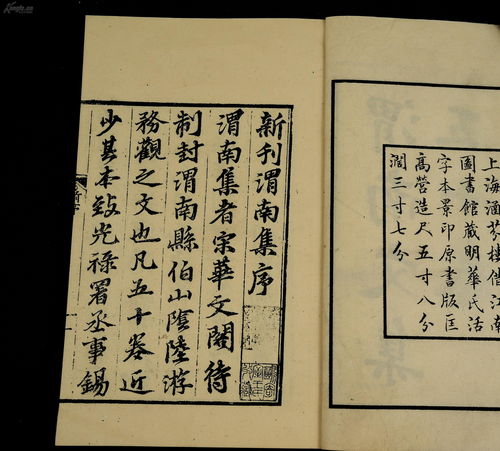 上海涵芬樓借江南
圖書館藏明華氏活
字本景印原書版匡
高營造尺五寸八分
濶三寸七分
新刊渭南集序
渭南集者宋華文閣待
制封渭南縣伯山隂陸游
務觀之文也凡五十卷近
少其本致光祿署丞事錫